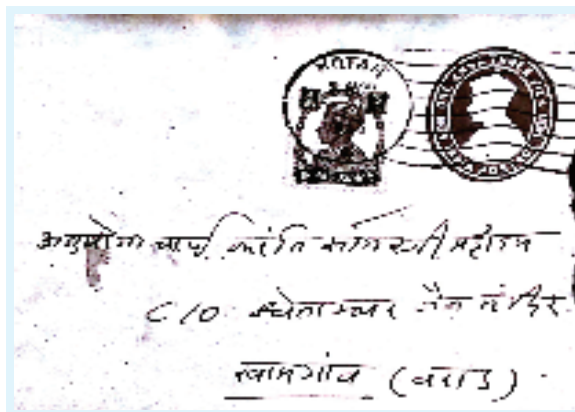 KOTAH
अनुयोगाचार्य कांति सागरजी महाराज
C/O. श्वेताम्बर जैन मंदिर
खामगांव (बरार)